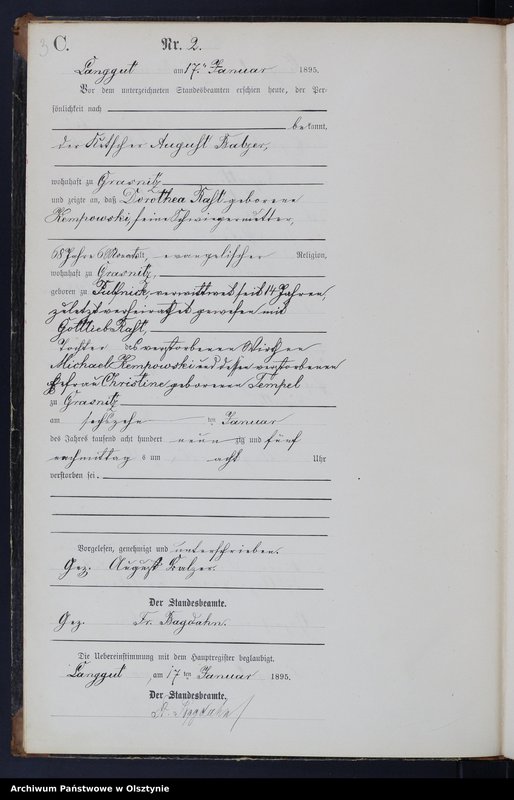 3 C. Nr. 2.
Langgut am 17ten Januar 1895.
Vor dem unterzeichneten Standesbeamten erschien heute, der Per-
sönlichkeit nach
bekannt,
der Kutscher August Balzer,
wohnhaft zu Grasnitz
und zeigte an, daß Dorothea Raht geborene
Kempowski, seine Schwiegermutter,
68 Jahre 6 Monate alt, evangelischer Religion,
wohnhaft zu Grasnitz,
geboren zu verwittwet seit 14 Jahren,
zuletzt verheirathet gewesen mit
Gottlieb Raht,
Tochter des verstorbenen Wirthen
Michael Kempowski und dessen verstorbenen
Ehefrau Christine geborenen Tempel
zu Grasnitz
am sechszehn ten Januar
des Jahres tausend acht hundert neun zig und fünf
nachmittags um acht Uhr
verstorben sei.
Vorgelesen, genehmigt und unterschrieben.
Gez. August Balzer.
Der Standesbeamte.
Gez. Fr. Bagdahn.
Die Uebereinstimmung mit dem Hauptregister beglaubigt.
Langgut, am 17ten Januar 1895.
Der Standesbeamte.
Fr. Bagdahn
Archiwum Państwowe w Olsztynie